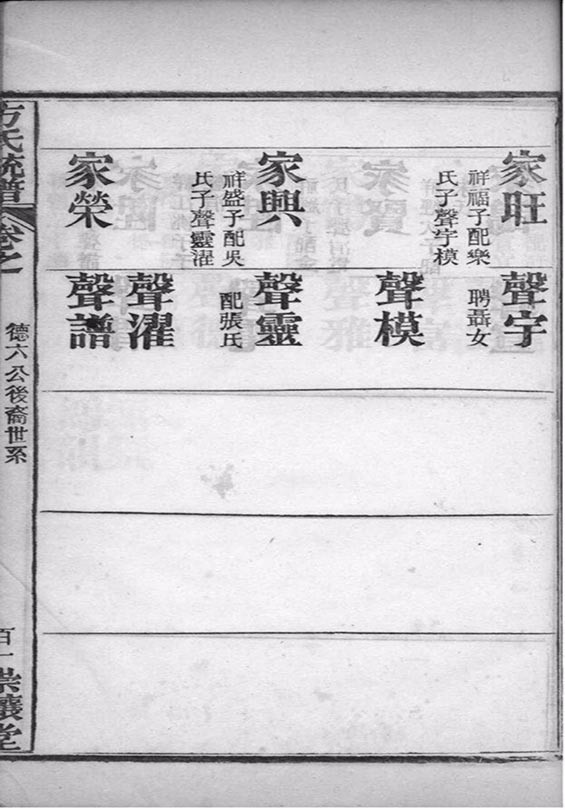 家旺
祥福子配樂
氏子聲宇模
家興
祥盛子配吳
氏子聲靈濯
家榮
聲宇
聘聶女
聲模
聲靈
配張氏
聲濯
聲譜
方氏統譜
卷之
德六公後裔世系
百一
崇讓堂